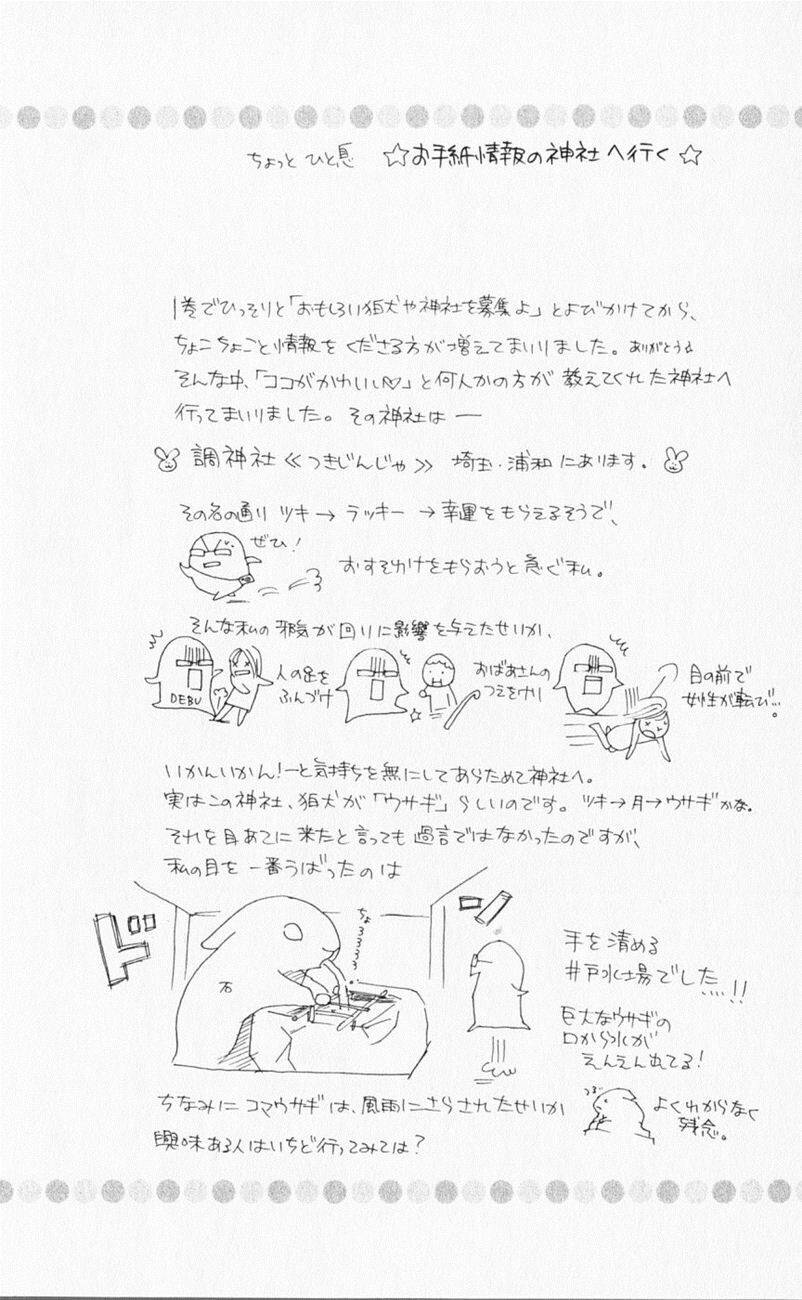 ちょっとひと息 ☆お手紙情報の神社へ行く☆
1巻でひっそりと「おもしろい狛犬や神社を募集よ」とよびかけてから、
ちょこちょこと情報をくださる方が増えてまいりました。ありがとうる
そんな中、「ココがかわいい♡」と何人かの方が教えてくれた神社へ
行ってまいりました。その神社は―
調神社≪つきじんじゃ≫ 埼玉・浦和にあります。
その名の通り ツキ→ラッキー→幸運をもらえるそうで、
ぜひ!
おすそわけをもらおうと急ぐ私。
そんな私の邪気が回りに影響を与えたせいか、
DEBU
人の足を
ふんづけ
おばあさんの
つえをけり
目の前で
女性が転び…。
いかんいかん!―と気持ちを無にしてあらためて神社へ。
実はこの神社、狛犬が「ウサギ」らしいのです。ツキ→月→ウサギかな。
それを目あてに来たと言っても過言ではなかったのですが、
私の目を一番うばったのは
ドーン
ちょろろろろ
石
手を清める
井戸水場でした…!!
巨大なウサギの
口から水が
えんえん出てる!
ちなみにコマウサギは、風雨にさらされたせいか
つるっ
よくわからなく
残念。
興味ある人はいちど行ってみては?